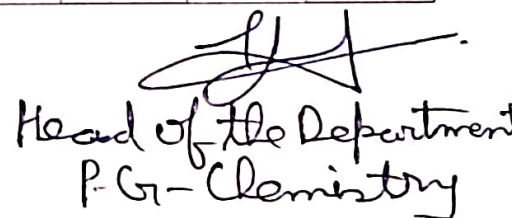 Head of the Department
P.G-Chemistry